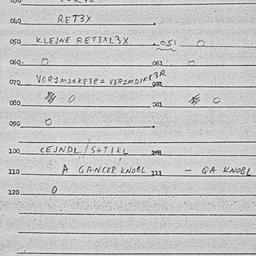 040 RET3X
050 KLEJNE RET3XL3X . 051 O
060 O 061 O
070 VOR1M21KP3R = VER1MD1KP3R
080 O 081 O
090 O
100 CEJNDL/S+TJKL
110 A GANCER KNOBL 111 - GA KNOBL
120 O